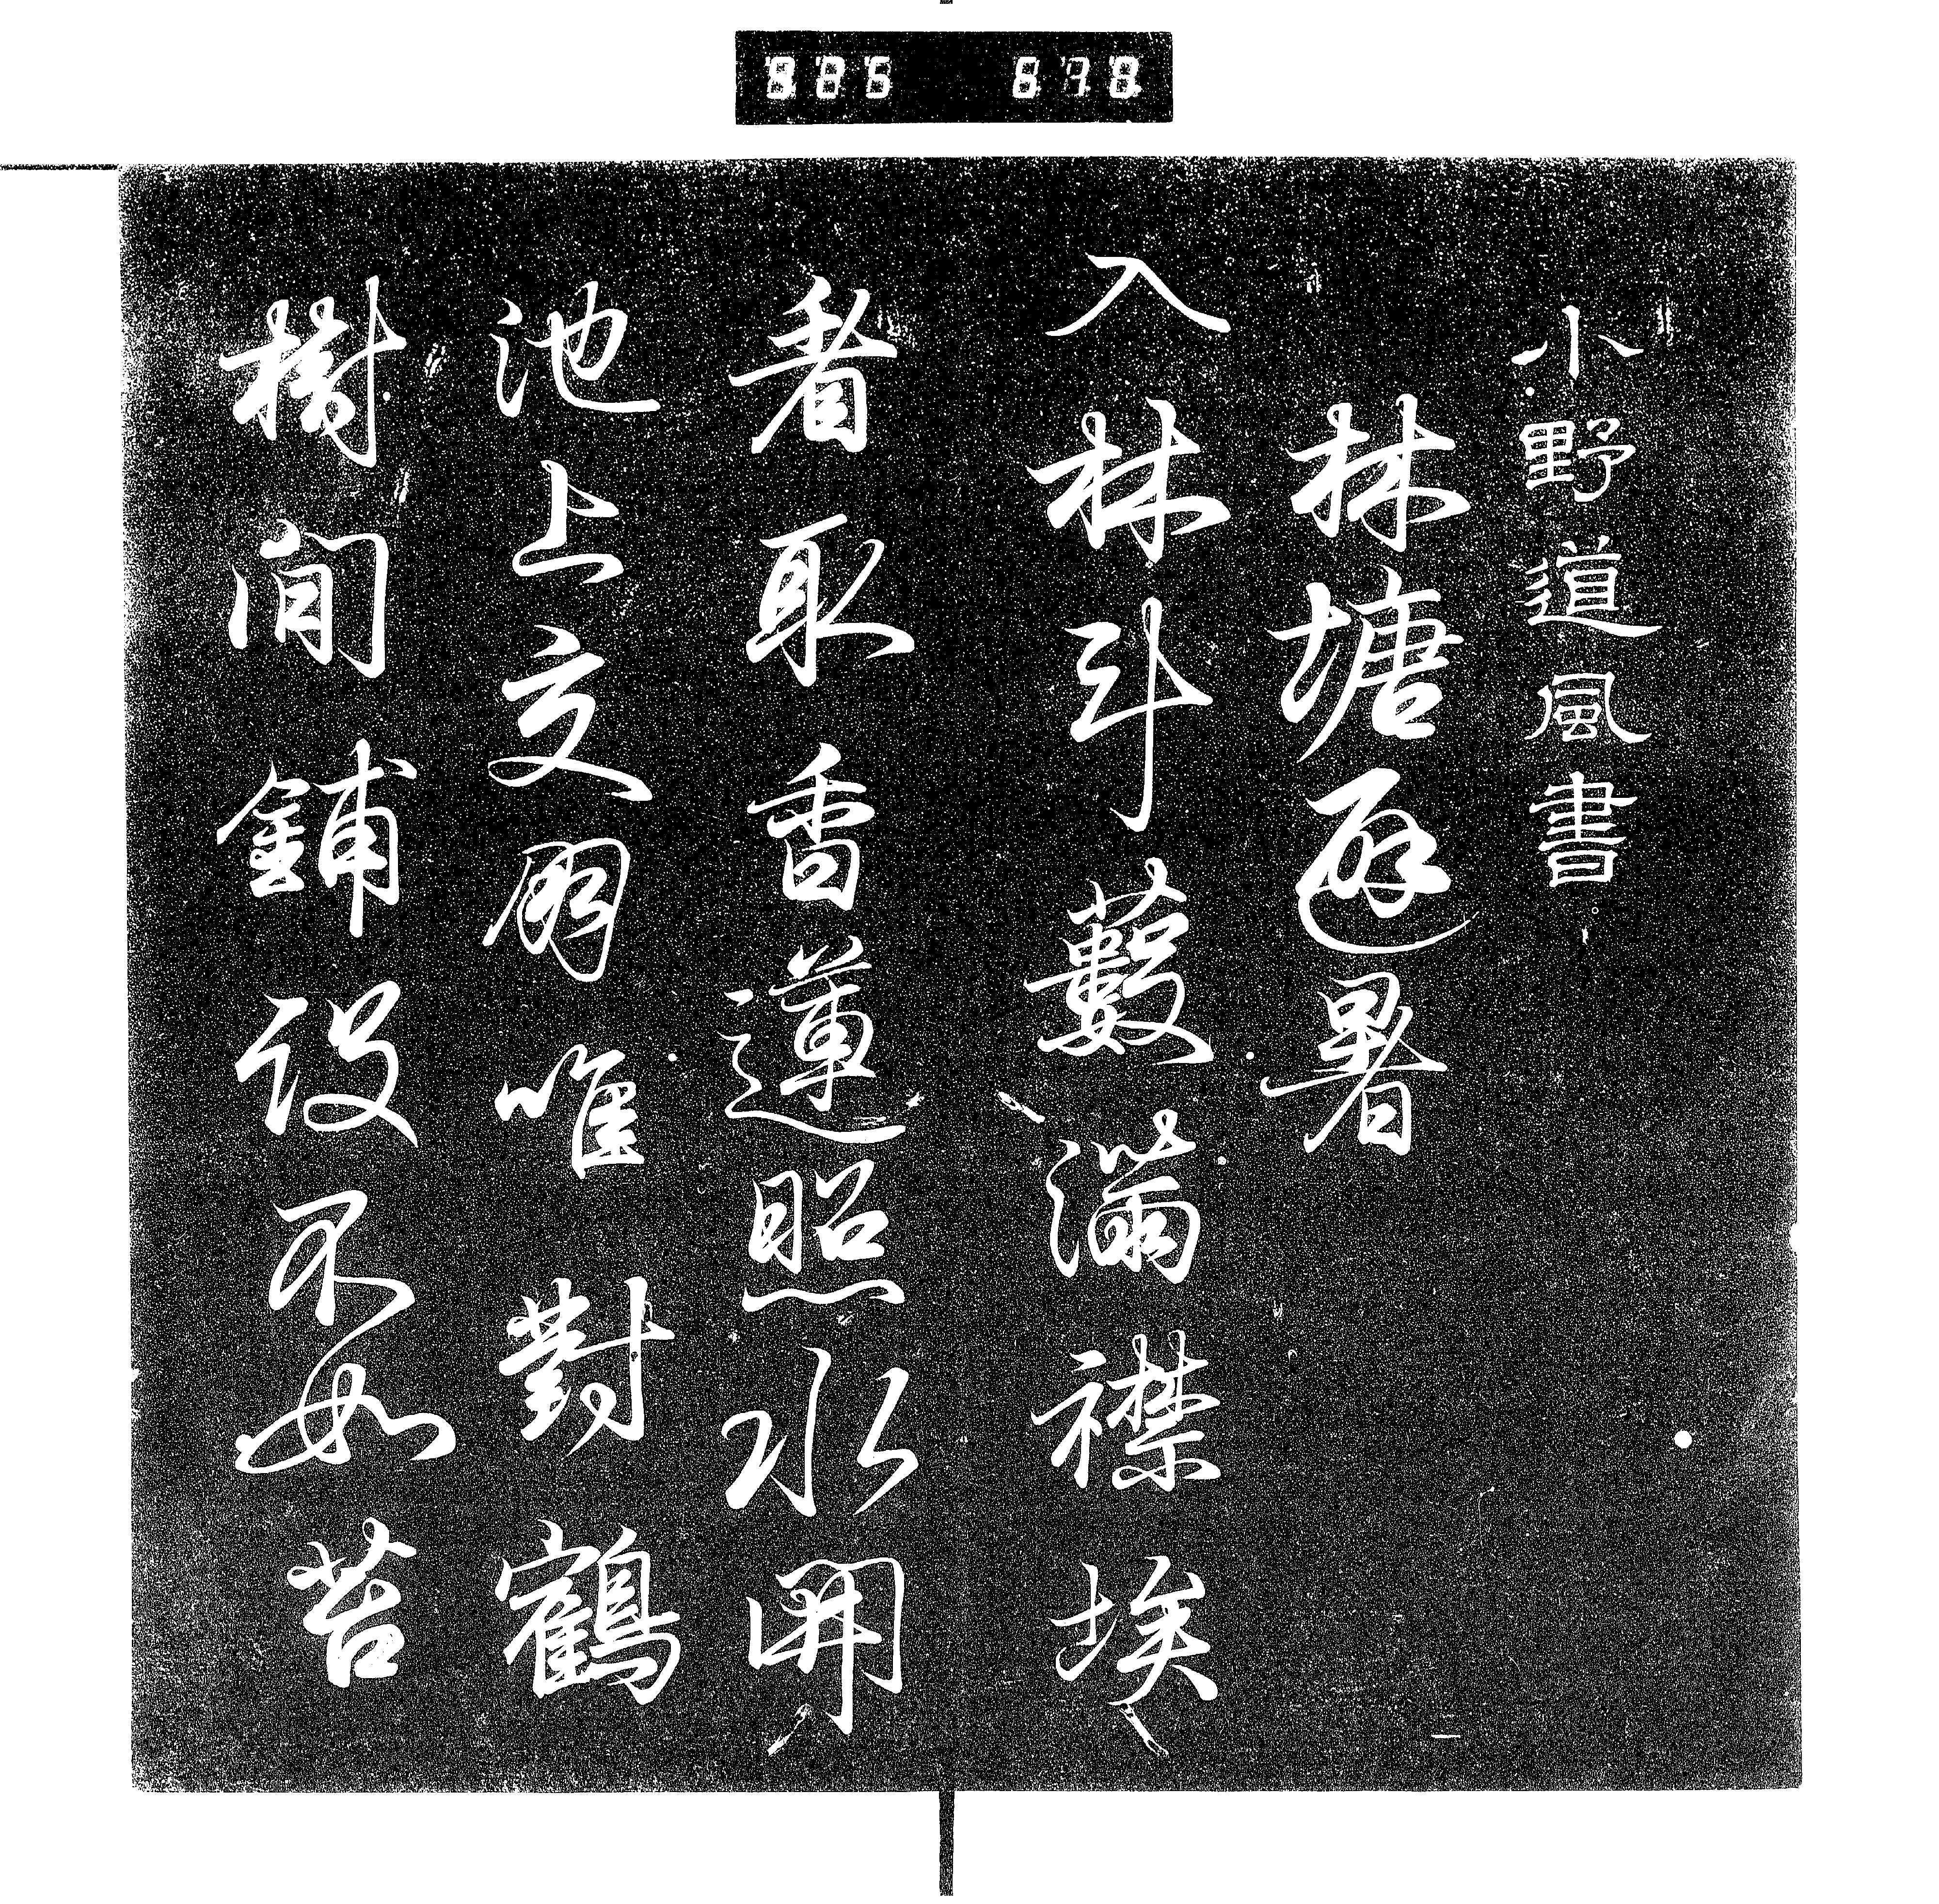 885 678
小野道風書
林塘避暑
入林斗藪滿襟埃
者取香蓮照水開
池上交朋唯對鶴
樹間鋪設不如苔